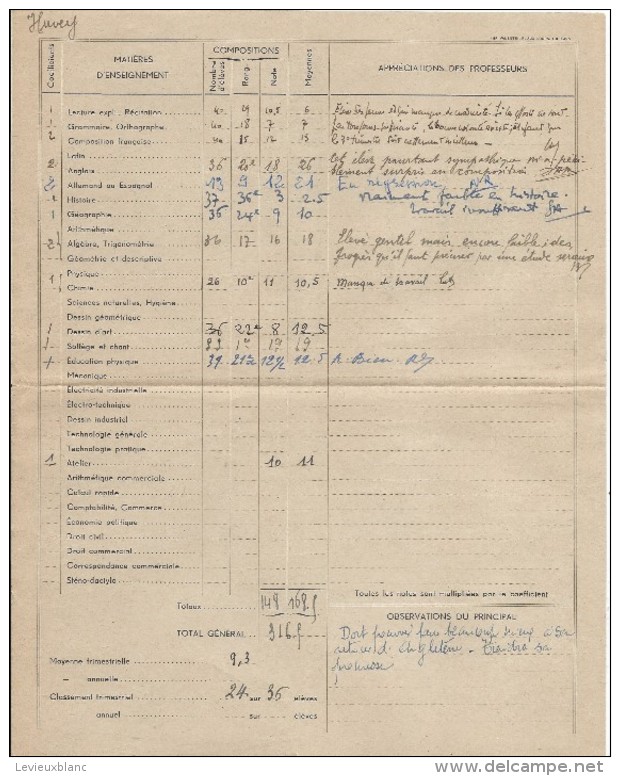 Huvey
COMPOSITIONS
Coefficients
MATIÈRES D'ENSEIGNEMENT
Nombre d'élèves
Rang
Note
Moyennes
APPRÉCIATIONS DES PROFESSEURS
1 Lecture expl., Récitation 40 29 10,5 6
1 Grammaire, Orthographe 40 18 7 7
2 Composition française 40 12 13
Latin
2 Anglais 36 20e 18 26 cet élève pourtant sympathique
2 Allemand ou Espagnol 19 9 12 21 En régression
Histoire 37 36e 3 2.5 vraiment faible en histoire.
1 Géographie 36 24e 9 10 travail insuffisant
Arithmétique
2 Algèbre, Trigonométrie 36 17 16 18 Elève gentil mais encore faible, des
Géométrie et descriptive progrès qu'il faut par une étude
Physique
1 Chimie 26 10e 11 10,5 Manque de travail
Sciences naturelles, Hygiène
Dessin géométrique
1 Dessin d'art 36 22e 8 12,5
Solfège et chant 1e 19 19
Education physique 12.5 A. Bien
Mécanique
Electricité industrielle
Électro-technique
Dessin industriel
Technologie générale
Technologie pratique
1 Atelier 10 11
Arithmétique commerciale
Calcul rapide
Comptabilité, Commerce
Economie politique
Droit civil
Droit commercial
Correspondance commerciale
Sténo-dactylo
Toutes les notes sont multipliées par le coefficient
Totaux 148 168,5
OBSERVATIONS DU PRINCIPAL
TOTAL GÉNÉRAL 316,5
Doit pouvoir faire beaucoup mieux à son
retour d'Angleterre - Tiendra sa
promesse
Moyenne trimestrielle 9,3
— annuelle
Classement trimestriel 24 sur 36 élèves
annuel sur élèves
Levieuxblanc
delcampe.net